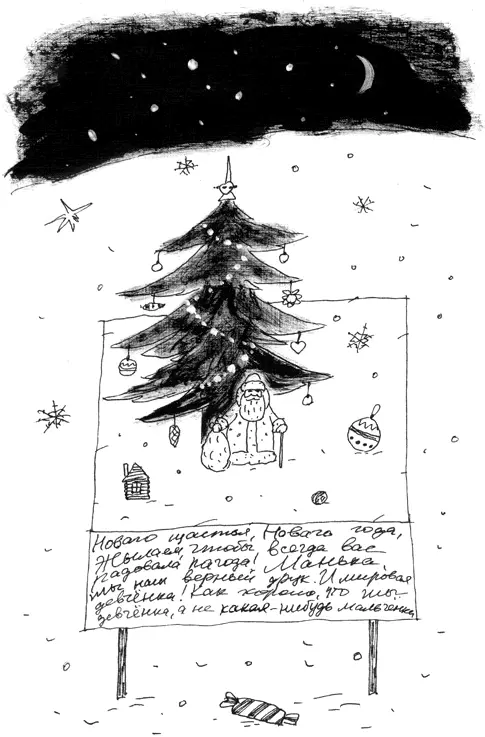 Новаго щастья, Новаго года,
Жылаем, чтобы всегда вас
радовала пагода! Манька,
ты наш верный друк. И мировая
девчёнка! Как хорошо, что ты-
девчёнка, а не какая-нибудь мальченка